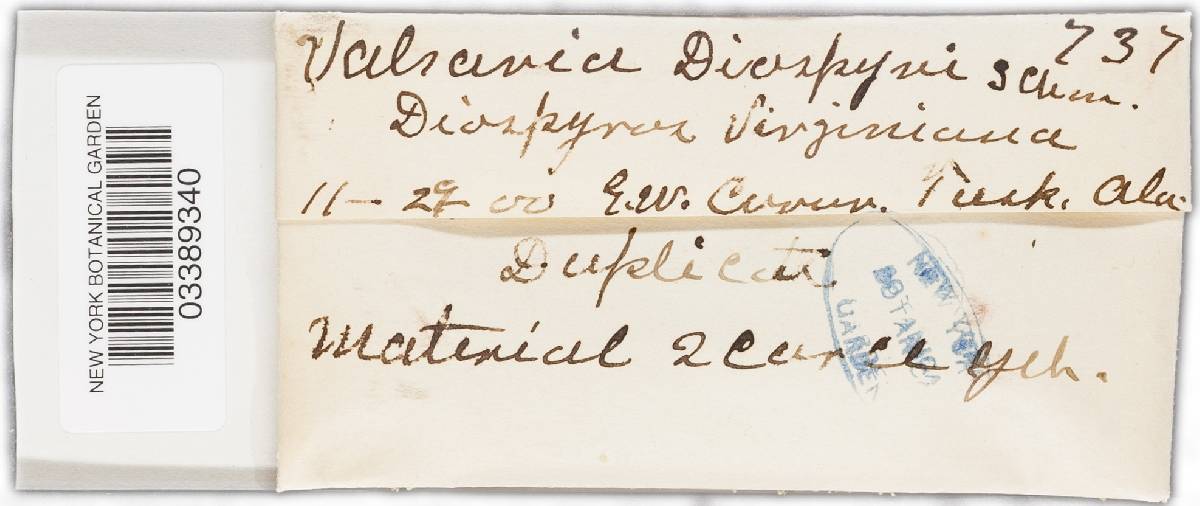 NEW YORK BOTANICAL GARDEN
03389340
737
Valsaria Diospyri Schw.
Diospyros Virginiana
11-29 00 G.W. Carver. Tusk. Ala.
Duplicate
Material Scarce
NEW YORK
BOTANICAL
GARDEN